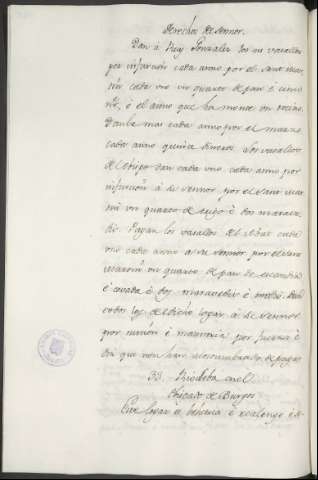 Derechos del Sennor.
Dan á Ruy Gonzalez sos vasallos
por infurcion cada anno por el Sant Mar
tin cada vno vn quarto de pan é
é el anno que ha monte vn tocino.
Danle mas cada anno por el marzo
cada anno quinze dineros. Los vasallos
del Obispo dan cada vno cada anno por
infurcion á so sennor por el Sant Mar
tin vn quarto de trigo é dos marave
dis. Pagan los vasallos del Abat cada
vno cada anno a su sennor por el Sant
Martin vn quarto de pan de escandia
é cevada é dos maravedis é medio.
todos los del dicho logar á so sennor
por nuncion é mannería por fuerza é
dis que non han acostumbrado de pagar
33. Rioseba en el
Obispado de Burgos
Este logar es behetria é realengo é